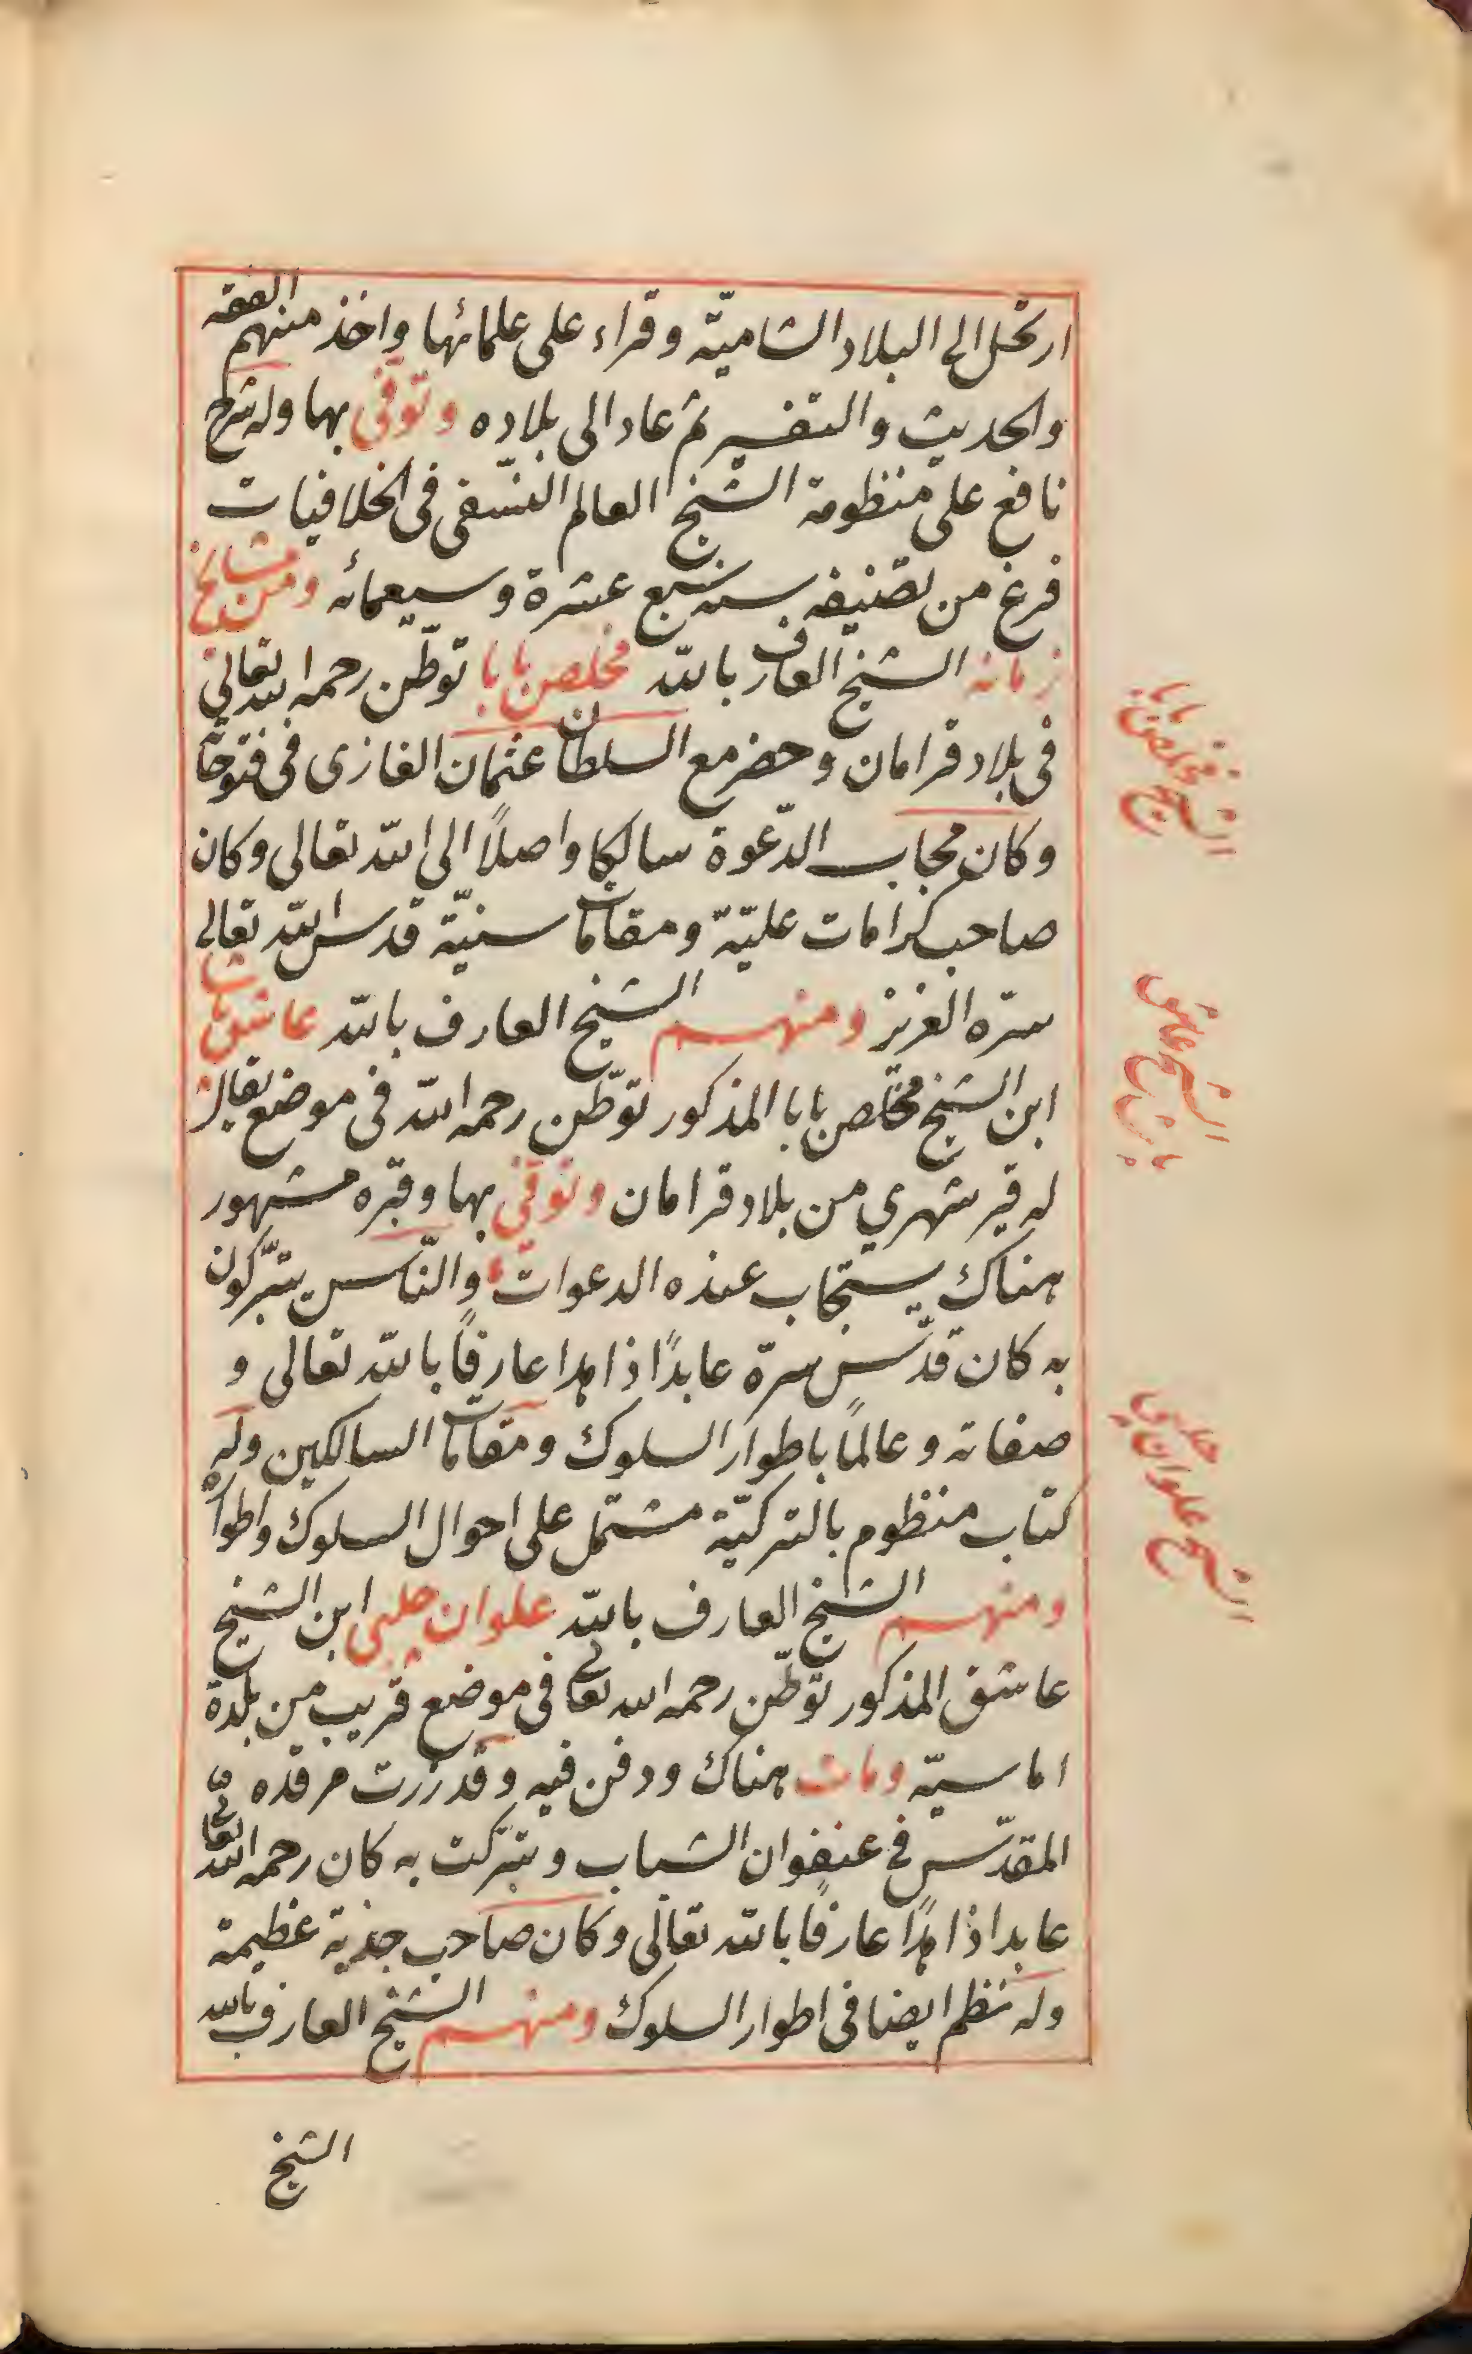 ارتحل الى البلاد الشاميّة وقراء على علمائها واخذ منهم الفقه
والحديث والتفسير ثم عاد الى بلاده وتوفى بها وله شرح
نافع على منظومة الشيخ العالم النسّفى فى الخلافيات
فرغ من تصنيفه سنه سبع عشرة وسبعمائه ومن مشايخ
زمانه الشيخ العارف بالله مخلص بابا توطّن رحمه الله تعالى
فى بلاد قرامان وحضر مع السلطان عثمان الغازى فى فتوحاته
وكان مجاب الدّعوة سالكا واصلاً الى الله تعالى وكان
صاحب كرامات عليّة ومقامات سنيّة قدس الله تعالى
سرّه العزيز ومنهم الشيخ العارف بالله عاشق باشا
ابن الشيخ مخلص بابا المذكور توطّن رحمه الله فى موضع يقال
له قير شهري من بلاد قرامان وتوفى بها وقبره مشهور
هناك يستجاب عنده الدعوات والنّاس يتبرّكون
به كان قدّس سرّه عابدًا زاهدا عارفًا بالله تعالى و
صفاته وعالمًا باطوار السلوك ومقامات السالكين وله
كتاب منظوم بالتركيّة مشتمل على احوال السلوك واطواره
ومنهم الشيخ العارف بالله علوان چلبى ابن الشيخ
عاشق المذكور توطّن رحمه الله تعالى فى موضع قريب من بلدة
اماسيّة ومات هناك ودفن فيه وقد زرت مرقده
المقدّس فى عنفوان الشباب وتبرّكت به كان رحمه الله تعالى
عابدا زاهدًا عارفًا بالله تعالى وكان صاحب جذبة عظيمة
وله نظم ايضا فى اطوار السلوك ومنهم الشيخ العارف بالله
الشيخ
الشيخ مخلص بابا
الشيخ عاشق
باشا
الشيخ علوان
چلبى